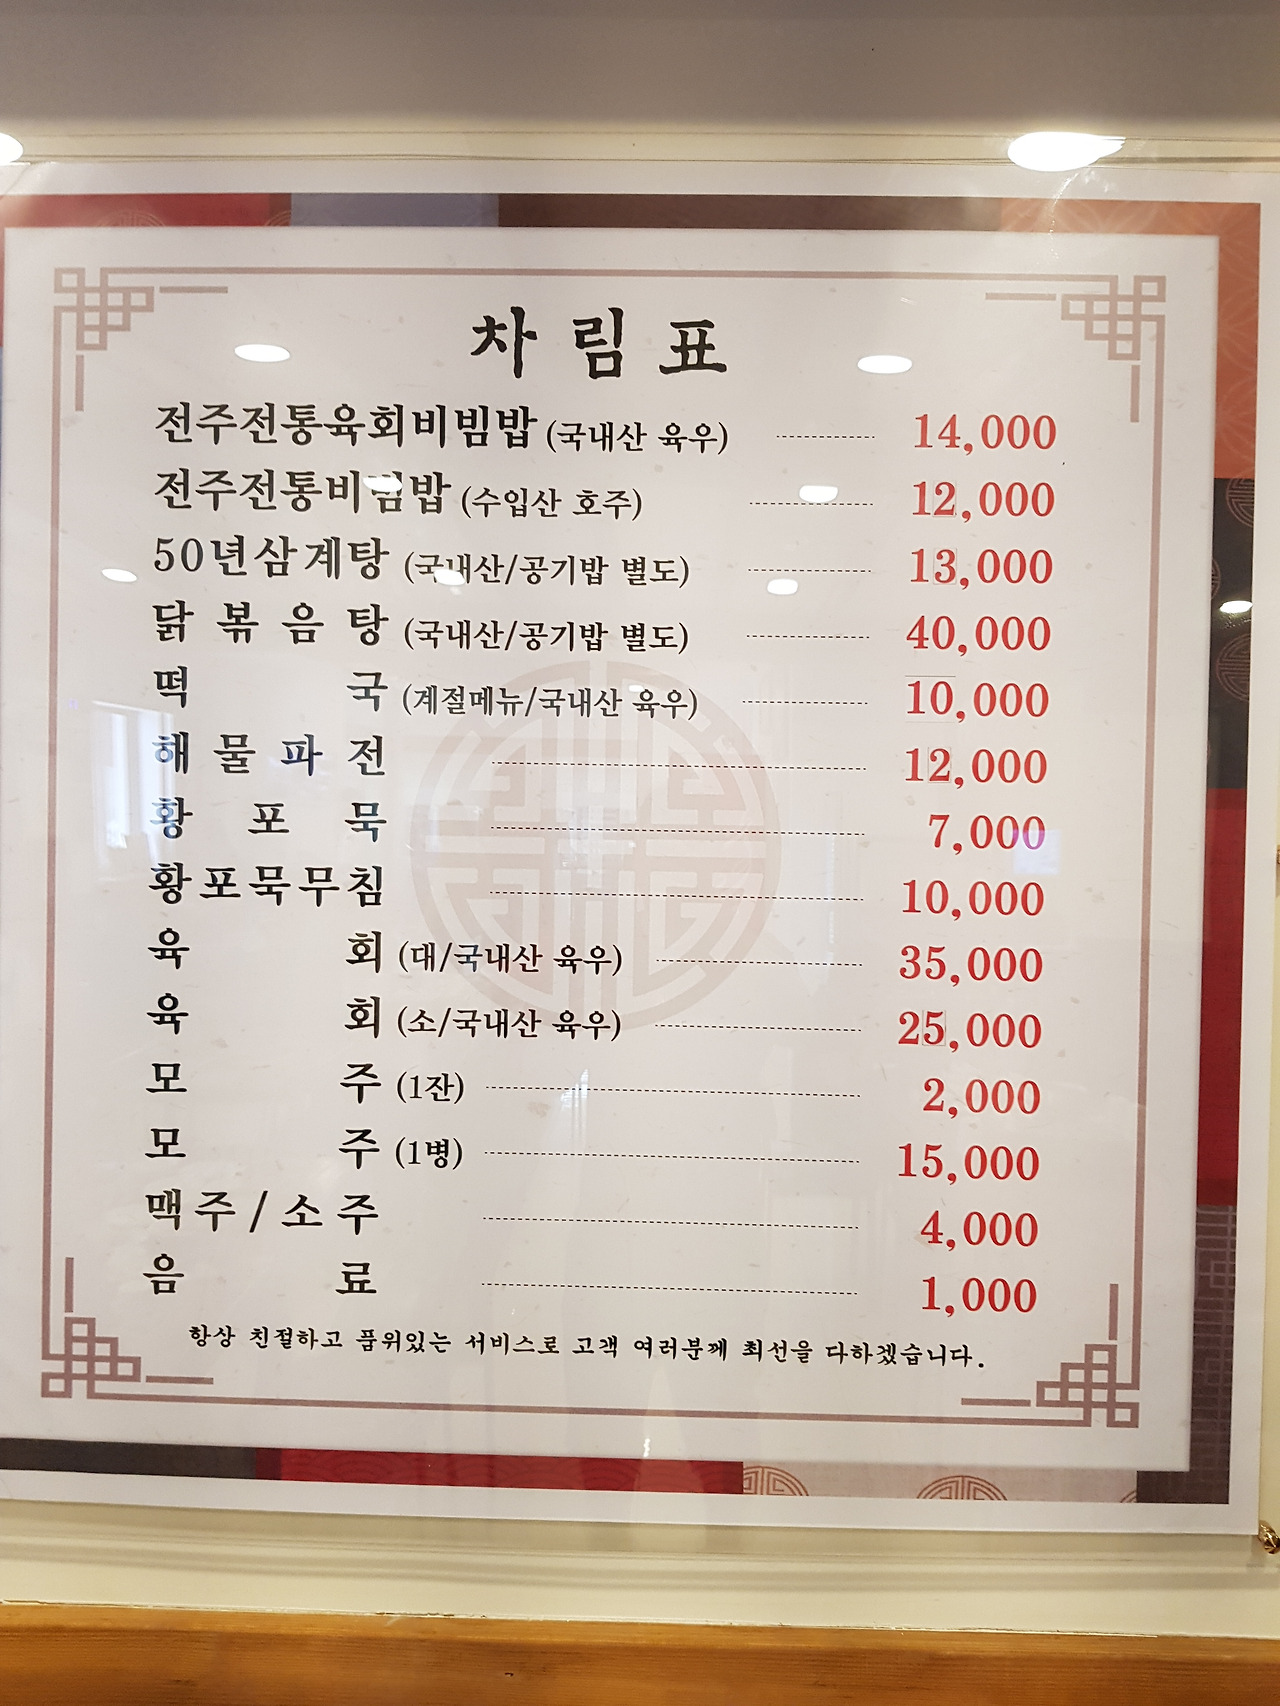 차림표
전주전통육회비빔밥 (국내산 육우) 14,000
전주전통비빔밥 (수입산 호주) 12,000
50년삼계탕 (국내산/공기밥 별도) 13,000
닭볶음탕 (국내산/공기밥 별도) 40,000
떡국 (계절메뉴/국내산 육우) 10,000
해물파전 12,000
황포묵 7,000
황포묵무침 10,000
육회 (대/국내산 육우) 35,000
육회 (소/국내산 육우) 25,000
모주 (1잔) 2,000
모주 (1병) 15,000
맥주/소주 4,000
음료 1,000
항상 친절하고 품위있는 서비스로 고객 여러분께 최선을 다하겠습니다.